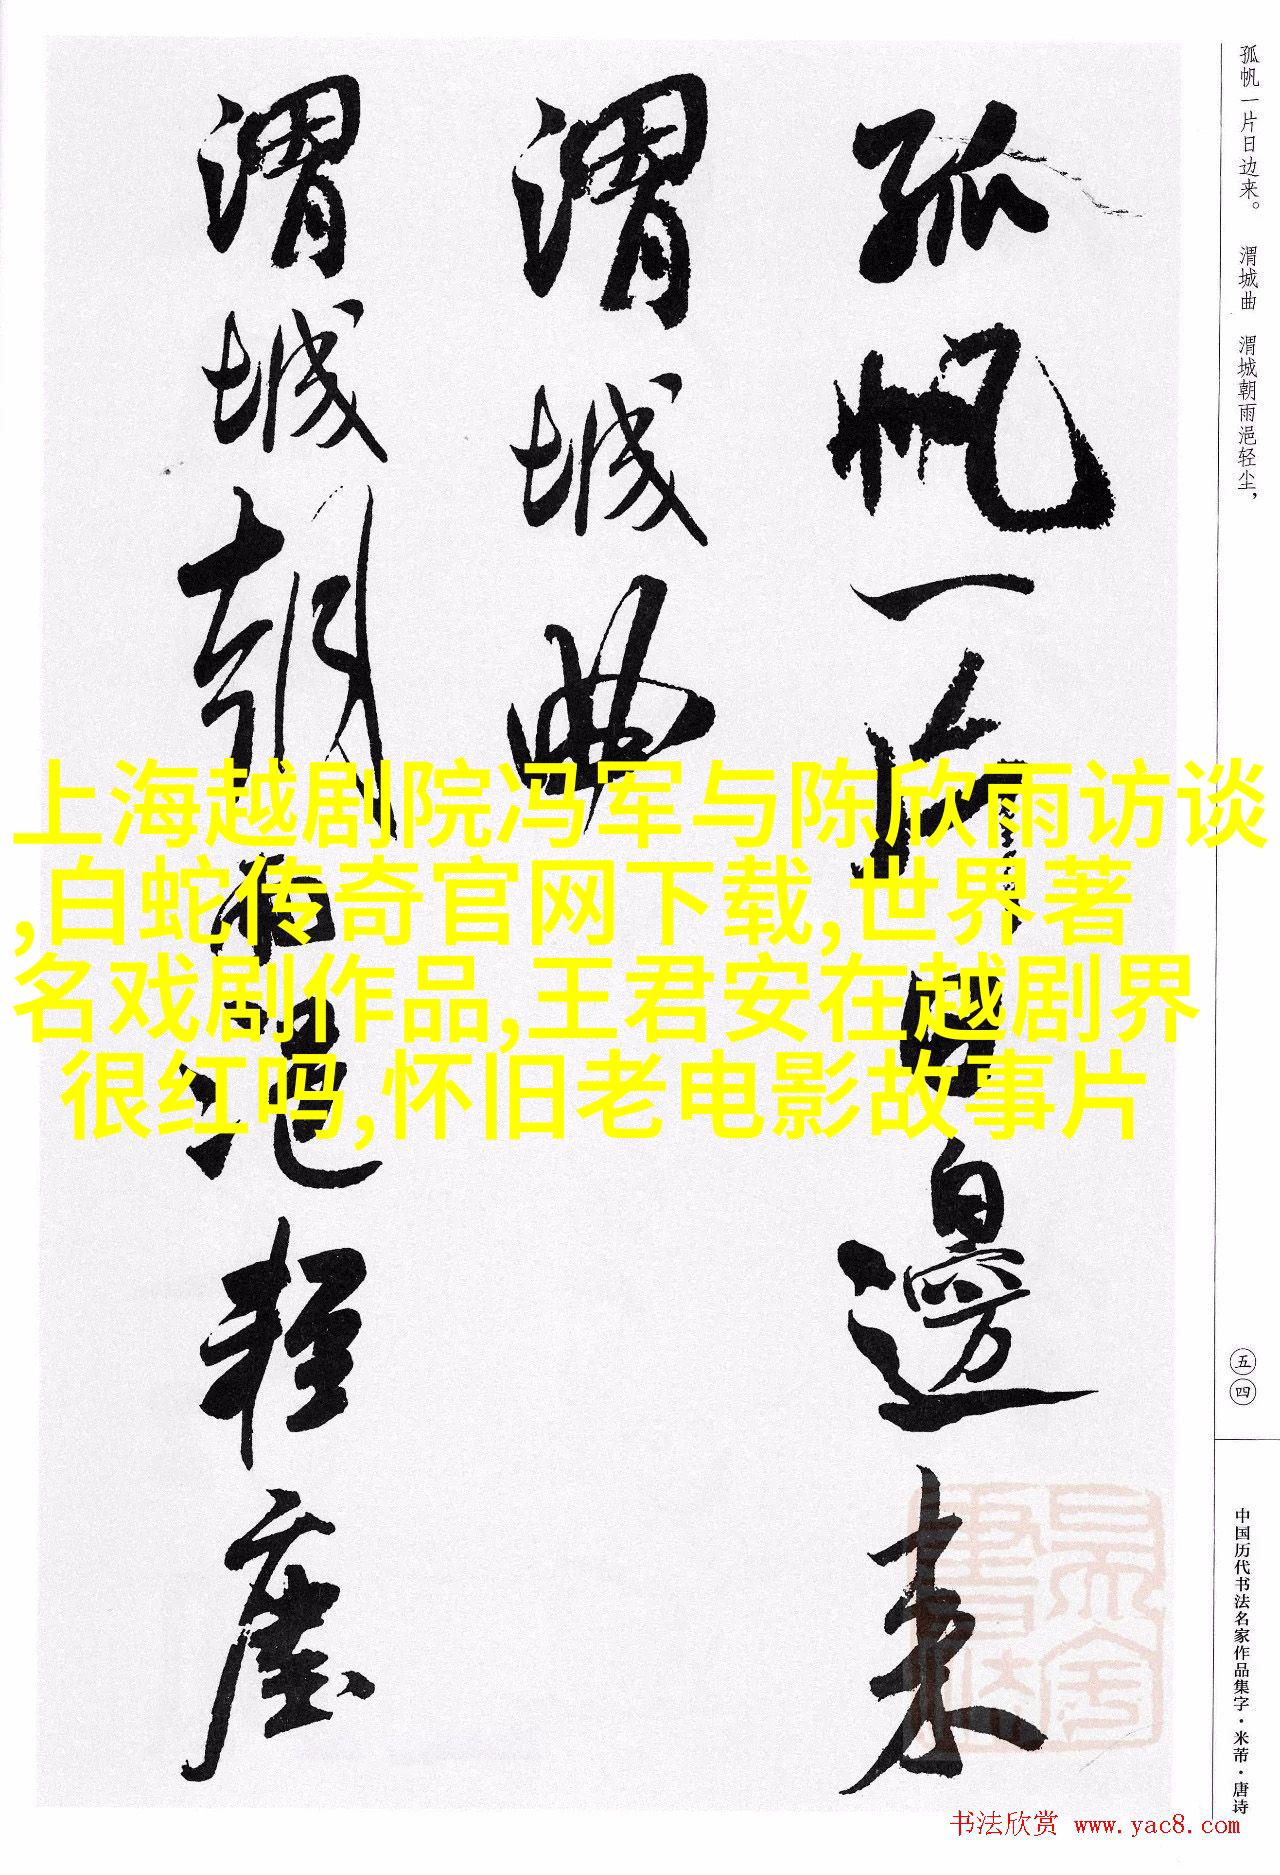 孤帆一片日边来。 渭城曲 渭城朝雨浥轻尘，
孤帆一片日邊来
渭城曲
渭城朝雨浥轻尘
上海越剧院冯军与陈欣雨访谈
,白蛇传奇官网下载,世界著
名戏剧作品,王君安在越剧界
很红吗,怀旧老电影故事片
五四
中国历代书法名家作品集字·米芾·唐诗
书法欣赏 www.yac8.com